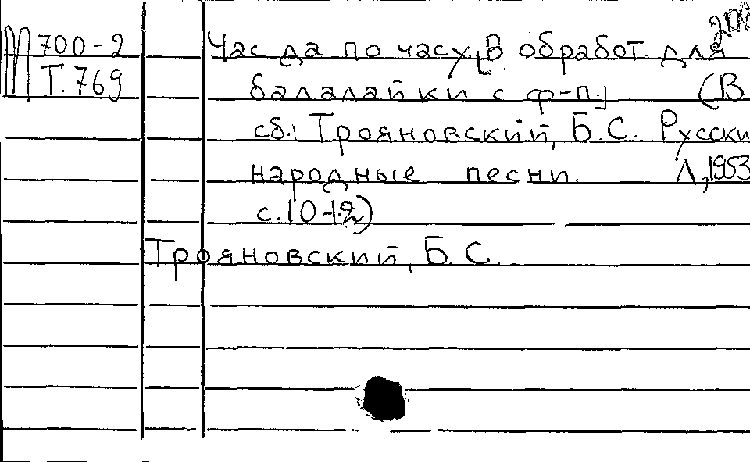 М 700-2 Час да по часу, [В обработ. для
Т.769 балалайки с ф-п.] (В
сб.: Трояновский, Б.С. Русски
народные песни. Л., 1953
с.10-12)
Трояновский, Б.С.